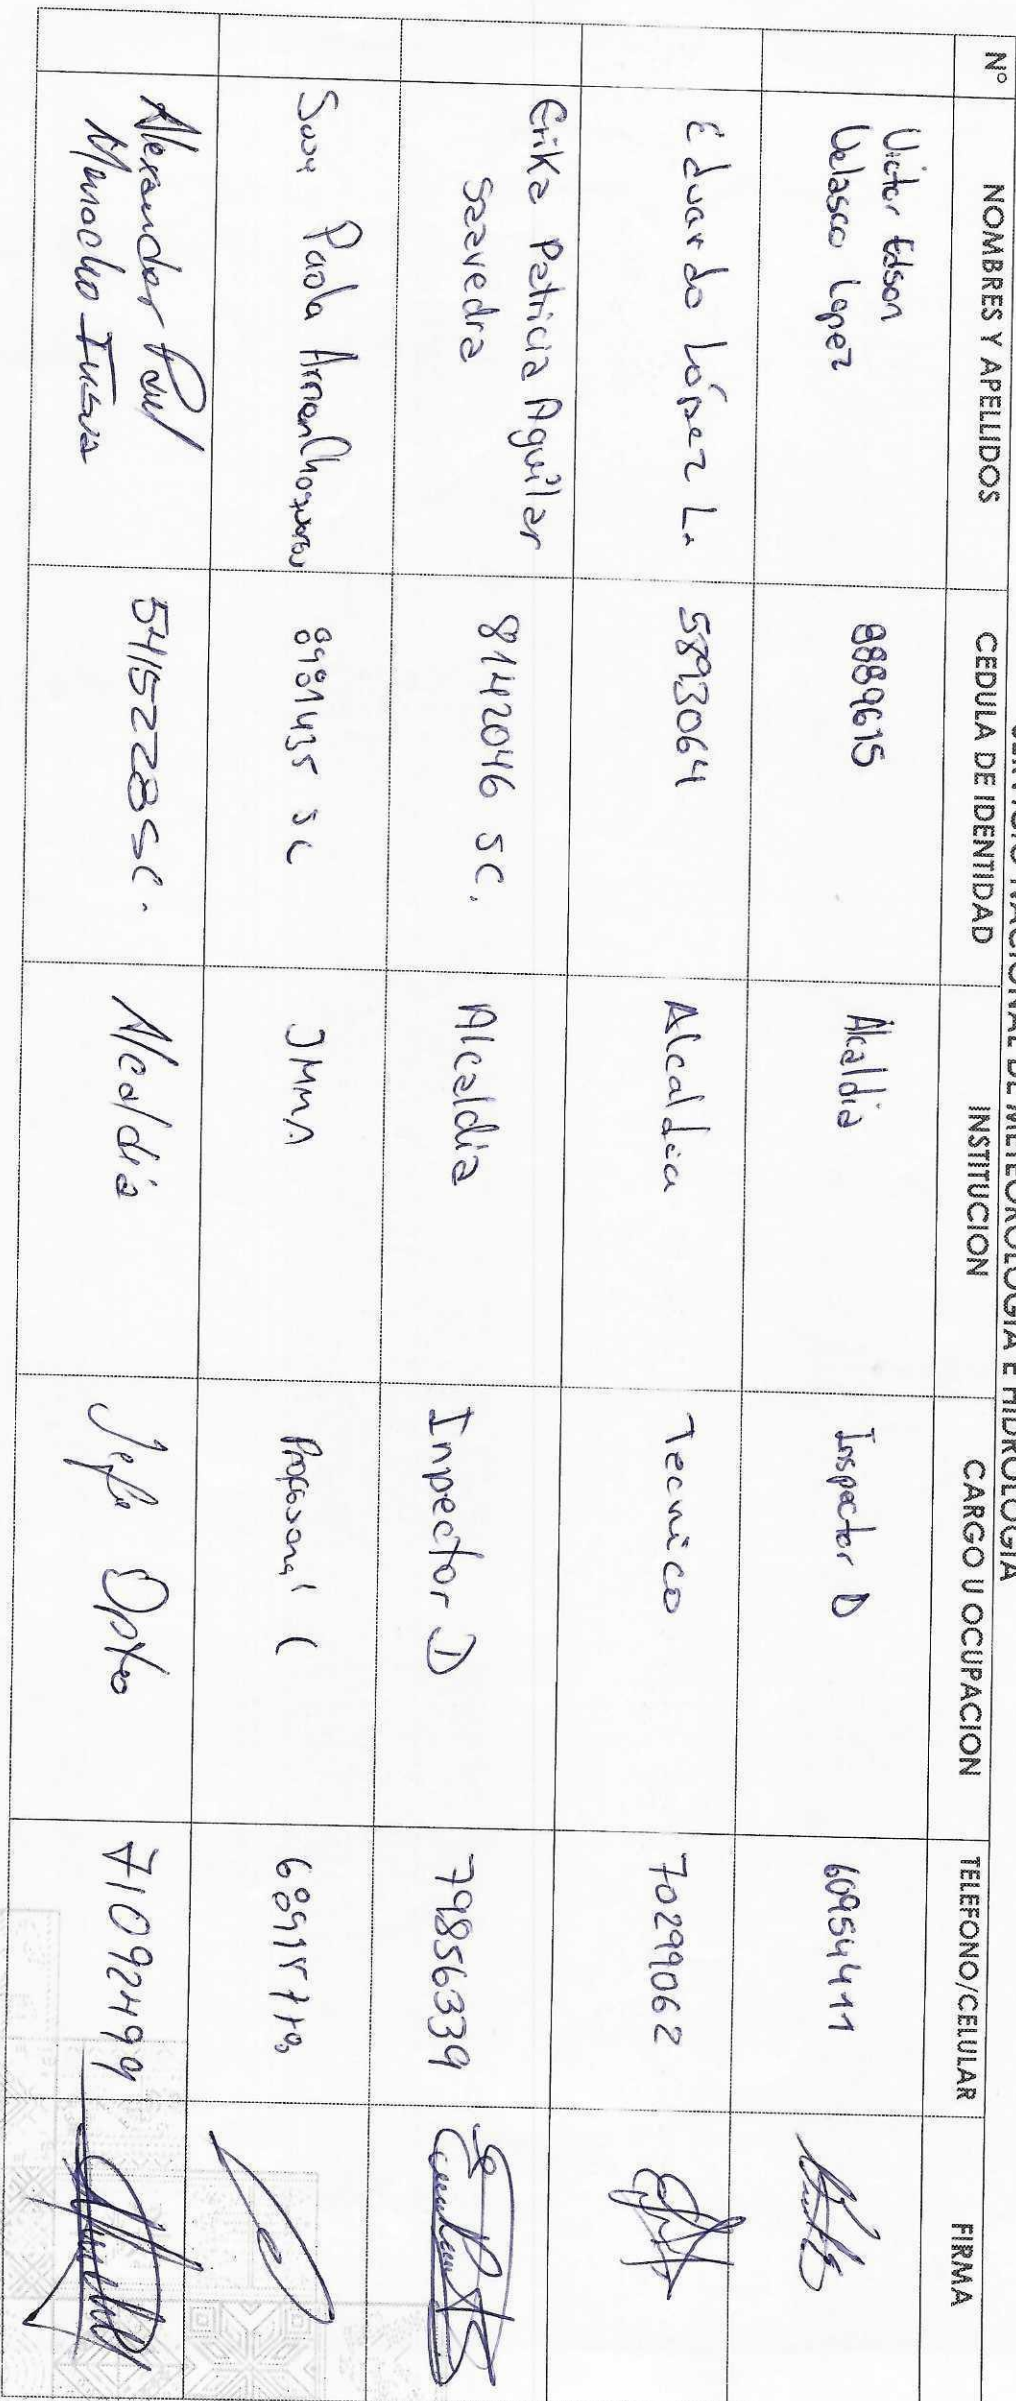 SERVICIO NACIONAL DE METEOROLOGIA E HIDROLOGIA
N° NOMBRES Y APELLIDOS CEDULA DE IDENTIDAD INSTITUCION CARGO U OCUPACION TELEFONO/CELULAR FIRMA
Victor Edson
Velasco Lopez 8889615 Alcaldia Inspector D 60954411
Eduardo López L. 5893064 Alcaldia Tecnico 70299062
Erika Patricia Aguilar
Saavedra 8142046 SC. Alcaldia Inpector D 79856339
Paola SC
Alexander Paul
5415228 SC. Alcaldia Jefe Dpto 71092499